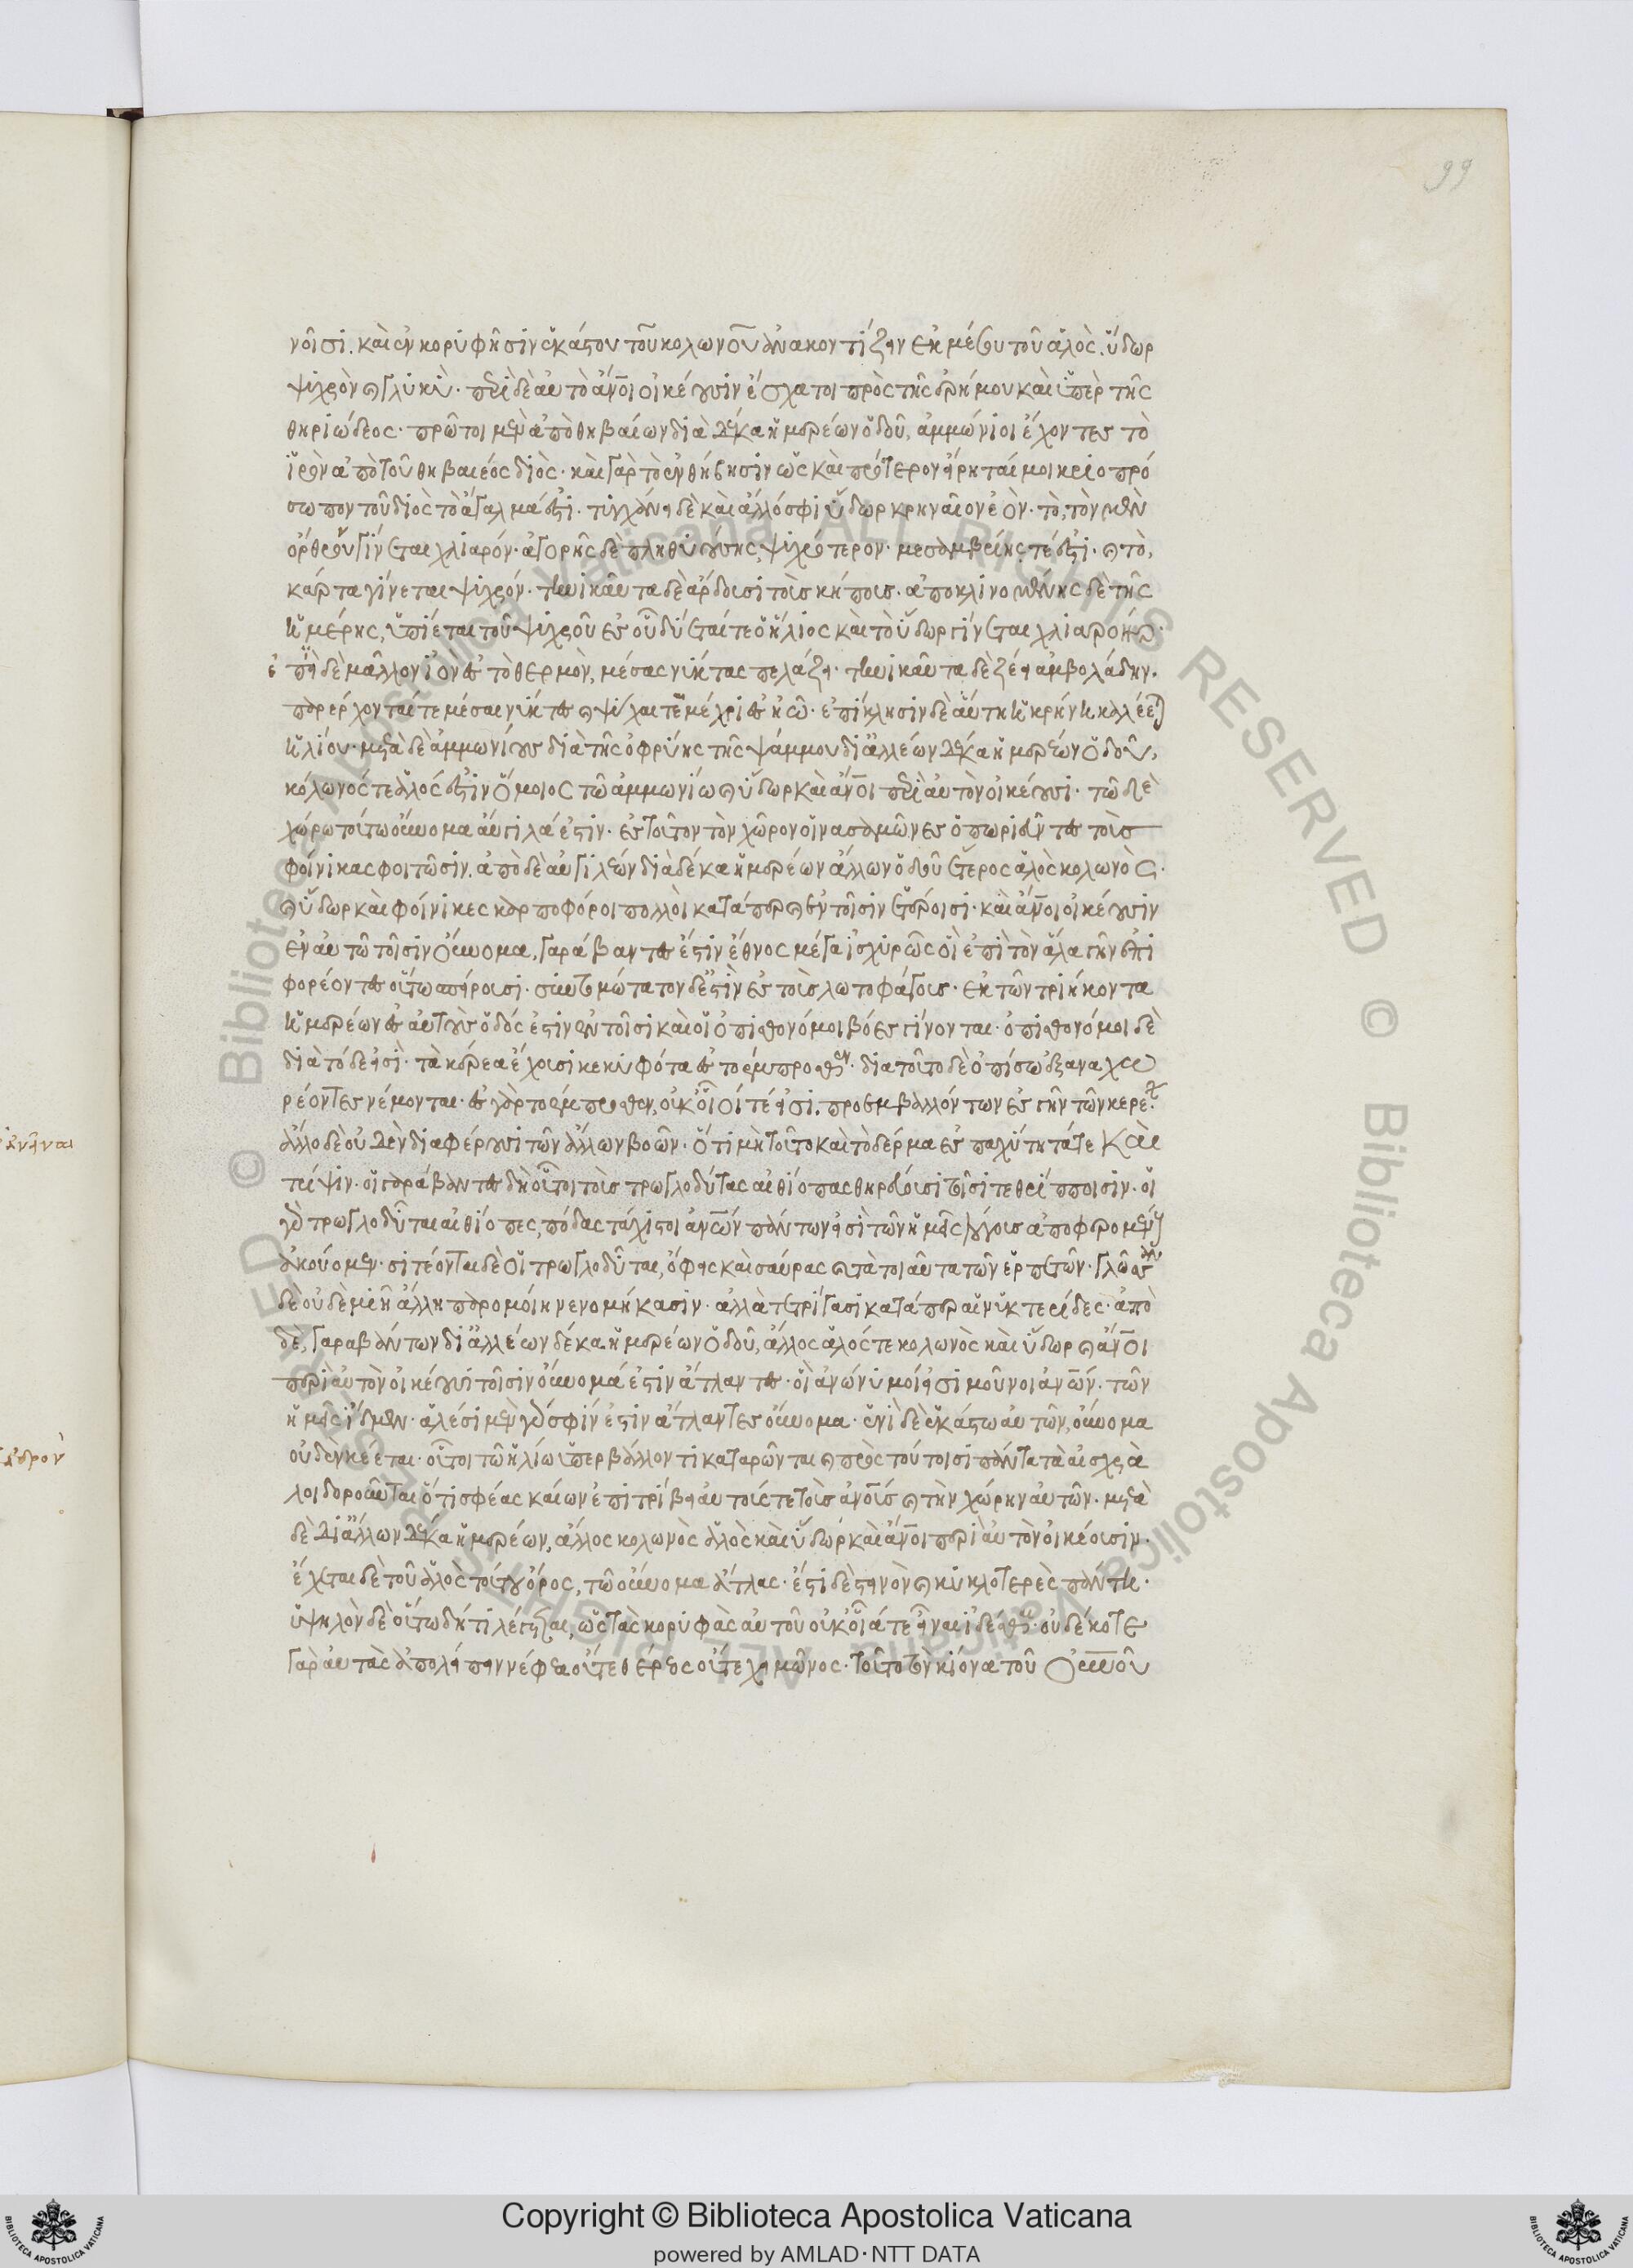 99
νοῖσι. καὶ ἐν κορυφῆσιν ἑκάστου τοῦ κολωνοῦ ἀνακοντίζειν ἐκ μέσου τοῦ ἁλὸς. ὕδωρ
ψυχρὸν καὶ γλυκὺ. περὶ δὲ αὐτὸ ἄνοι οἰκέουσιν ἔσχατοι πρὸς τῆς ἐρήμου καὶ ὑπὲρ τῆς
θηριώδεος. πρῶτοι μὲν ἀπὸ θηβαίων διὰ δέκα ἡμερέων ὁδοῦ, ἀμμώνιοι ἔχοντες τὸ
ἱρὸν ἀπὸ τοῦ θηβαιέος διὸς. καὶ γὰρ τὸ ἐν θήβησιν ὡς καὶ πρότερον εἴρηταί μοι κριοπρό
σωπον τοῦ διὸς τὸ ἄγαλμά ἐστι. τυγχάνει δὲ καὶ ἄλλό σφι ὕδωρ κρηναῖον ἐὸν. τὸ, τὸν μὲν
ὄρθρον γίνεται χλιαρόν. ἀγορῆς δὲ πληθυούσης, ψυχρότερον. μεσαμβρίης τέ ἐστι. καὶ τὸ,
κάρτα γίνεται ψυχρόν. τηνικαῦτα δὲ ἄρδουσι τοὺς κήπους. ἀποκλινομένης δὲ τῆς
ἡμέρης, ὑπίεται τοῦ ψυχροῦ ἐς οὗ δύεταί τε ὁ ἥλιος καὶ τὸ ὕδωρ γίνεται χλιαρὸν.
ἐπὶ δὲ μᾶλλον ἰὸν ἐς τὸ θερμὸν, μέσας νύκτας πελάζει. τηνικαῦτα δὲ ζέει ἀμβολάδην.
παρέρχονταί τε μέσαι νύκτες καὶ ψύχεται μέχρι ἐς ἠῶ. ἐπίκλησιν δὲ αὕτη ἡ κρήνη καλέεται
ἡλίου. μετὰ δὲ ἀμμωνίους διὰ τῆς ὀφρύης τῆς ψάμμου δι' ἀλλέων δέκα ἡμερέων ὁδοῦ,
κολωνός τε ἁλός ἐστιν ὅμοιος τῶ ἀμμωνίω καὶ ὕδωρ καὶ ἄνοι περὶ αὐτὸν οἰκέουσι. τῶ δὲ
χώρω τούτω οὔνομα αὔγιλά ἐστιν. ἐς τοῦτον τὸν χῶρον οἱ νασαμῶνες ὀπωριεῦντες τοὺς
φοίνικας φοιτῶσιν. ἀπὸ δὲ αὐγιλέων διὰ δέκα ἡμερέων ἄλλων ὁδοῦ ἕτερος ἁλὸς κολωνὸς.
καὶ ὕδωρ καὶ φοίνικες καρποφόροι πολλοὶ κατάπερ καὶ ἐν τοῖσιν ἑτέροισι. καὶ ἄνοι οἰκέουσιν
ἐν αὐτῶ τοῖσιν οὔνομα, γαράβαντες ἐστιν ἔθνος μέγα ἰσχυρῶς οἳ ἐπὶ τὸν ἅλα γῆν ἐπι
φορέοντες οὕτω σπείρουσι. συντομώτατον δέ ἐστὶν ἐς τοὺς λωτοφάγους. ἐκ τῶν τριήκοντα
ἡμερέων ἐς αὐτοὺς ὁδός ἐστιν ἐν τοῖσι καὶ οἱ ὀπισθονόμοι βόες γίνονται. ὀπισθονόμοι δὲ
διὰ τόδε εἰσὶ. τὰ κέρεα ἔχουσι κεκυφότα ἐς τὸ ἔμπροσθεν. διὰ τοῦτο δὲ ὀπίσω ἐξαναχω
ρέοντες νέμονται. ἐς γὰρ τὸ ἔμπροσθεν, οὐκ οἷοί τέ εἰσι. προεμβαλλόντων ἐς γῆν τῶν κερε
ἄλλο δὲ οὐδὲν διαφέρουσι τῶν ἄλλων βοῶν. ὅτι μὴ τοῦτο καὶ τὸ δέρμα ἐς παχύτητά τε καὶ
τρίψιν. οἱ γαράβαντες δὴ οὗτοι τοὺς τρωγλοδύτας αἰθίοπας θηρεύουσι τοῖσι τεθρίπποισιν. οἱ
γὰρ τρωγλοδῦται αἰθίοπες, πόδας τάχιστοι ἀνῶν πάντων εἰσὶ τῶν ἡμεῖς λόγους ἀποφερομένους
ἀκούομεν. σιτέονται δὲ οἱ τρωγλοδῦται, ὄφεις καὶ σαύρας καὶ τὰ τοιαῦτα τῶν ἑρπετῶν. γλῶσσαν
δὲ οὐδεμιῆ ἄλλη παρομοίην νενομήκασιν. ἀλλὰ τετρίγασι κατάπερ αἱ νυκτερίδες. ἀπὸ
δὲ, γαραβάντων δι' ἀλλέων δέκα ἡμερέων ὁδοῦ, ἄλλος ἁλός τε κολωνὸς καὶ ὕδωρ καὶ ἄνοι
περὶ αὐτὸν οἰκέουσι τοῖσιν οὔνομά ἐστιν ἄτλαντες. οἳ ἀνώνυμοί εἰσι μοῦνοι ἀνῶν. τῶν
ἡμεῖς ἴδμεν. ἁλέσι μὲν γάρ σφίν ἐστιν ἄτλαντες οὔνομα. ἑνὶ δὲ ἑκάστω αὐτῶν, οὔνομα
οὐδὲν κέεται. οὗτοι τῶ ἡλίω ὑπερβάλλοντι καταρῶνται καὶ πρὸς τούτοισι πάντα τὰ αἰσχρὰ
λοιδορεῦνται ὅτι σφέας καίων ἐπιτρίβει αὐτούς τε τοὺς ἀνους καὶ τὴν χώρην αὐτῶν. μετὰ
δὲ δι' ἄλλων δέκα ἡμερέων, ἄλλος κολωνὸς ἁλὸς καὶ ὕδωρ καὶ ἄνοι περὶ αὐτὸν οἰκέουσιν.
ἔχεται δὲ τοῦ ἁλὸς τούτου ὄρος, τῶ οὔνομα ἄτλας. ἔστι δὲ στεινὸν καὶ κυκλοτερὲς πάντη.
ὑψηλὸν δὲ οὕτω δή τι λέγεται, ὡς τὰς κορυφὰς αὐτοῦ οὐκ οἷά τε εἶναι ἰδέσθαι. οὐδέκοτε
γὰρ αὐτὰς ἀπολείπειν νέφεα οὔτε θέρεος οὔτε χειμῶνος. τοῦτο τὸν κίονα τοῦ οὐνοῦ
Copyright © Biblioteca Apostolica Vaticana
powered by AMLAD·NTT DATA